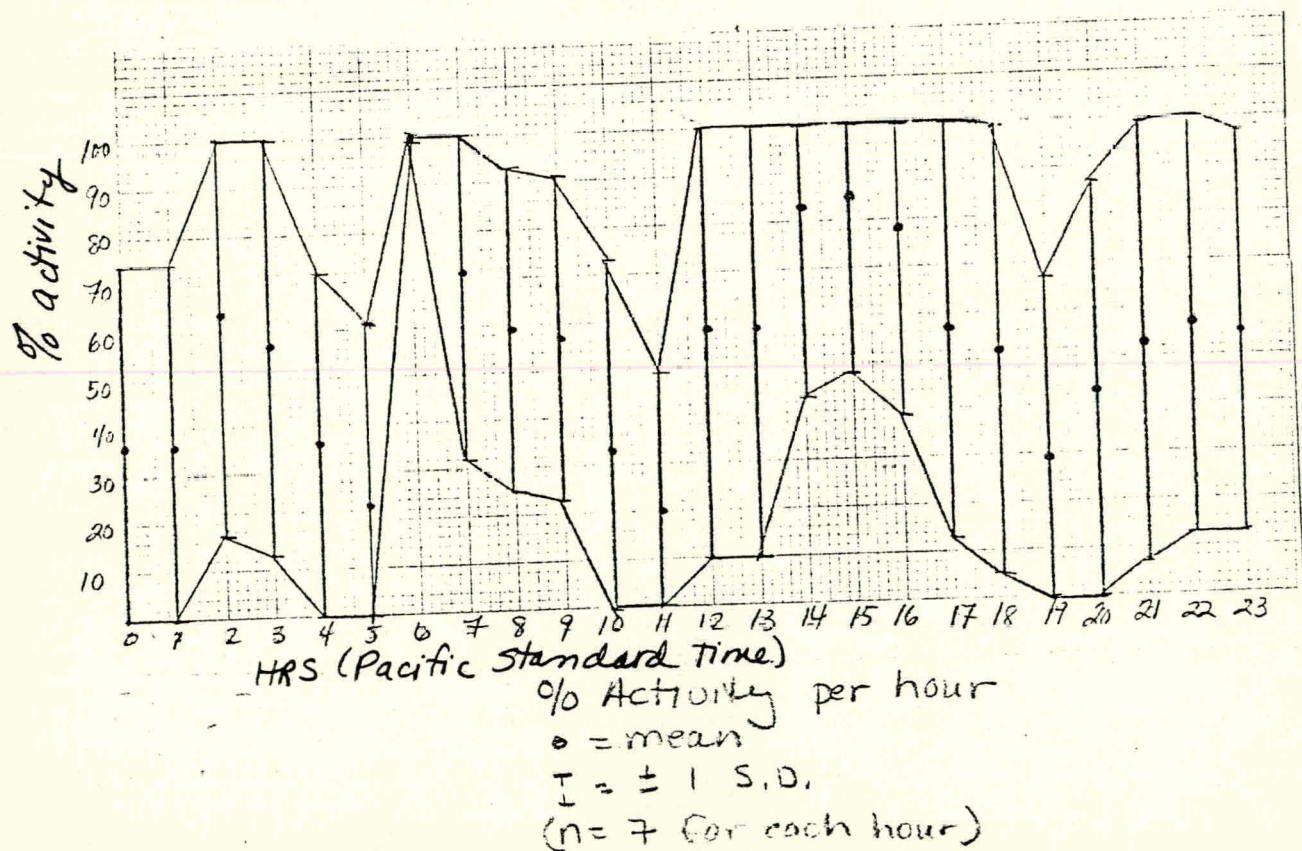 % activity
100
90
80
70
60
50
40
30
20
10
0 1 2 3 4 5 6 7 8 9 10 11 12 13 14 15 16 17 18 19 20 21 22 23
HRS (Pacific Standard Time)
% Activity per hour
• = mean
I = ± 1 S.D.
(n = 7 for each hour)